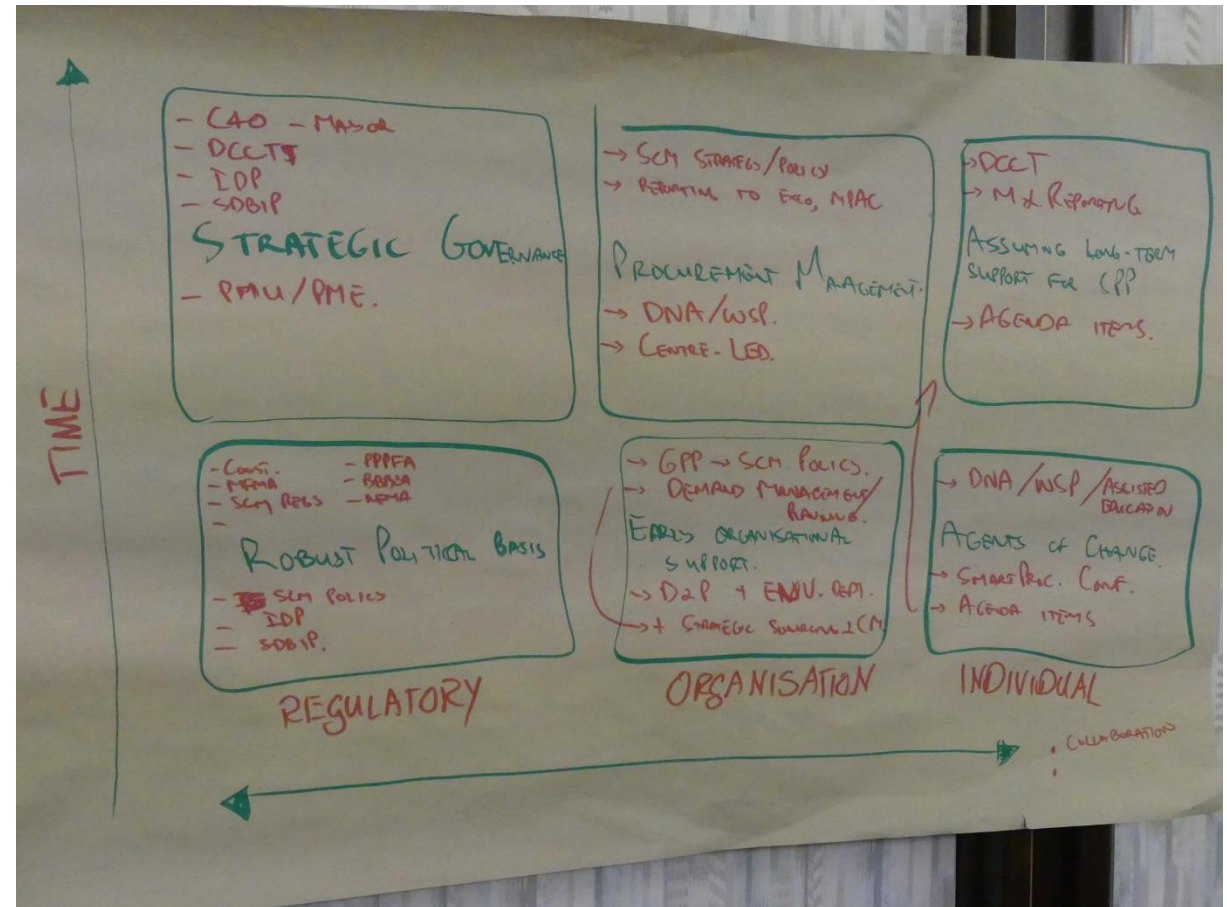 - C40 - MAYOR
- DCCT
- IDP
- SDBIP
STRATEGIC GOVERNANCE
- PMU/PME.
→ SCM STRATEGY/POLICY
→ REPORTING TO EXCO, MPAC
PROCUREMENT MANAGEMENT.
→ DNA/WSP.
→ CENTRE-LED.
→ DCCT
→ M & REPORTING
ASSUMING LONG-TERM
SUPPORT FOR SPP
→ AGENDA ITEMS.
TIME
- CONST. - PPPFA
- MFMA - BBBEA
- SCM REGS - NEMA
-
ROBUST POLITICAL BASIS
- SCM POLICY
- IDP
- SDBIP.
→ GPP → SCM POLICY.
→ DEMAND MANAGEMENT/
PLANNING.
EARLY ORGANISATIONAL
SUPPORT.
→ D2P + ENV. DEPT.
→ + STRATEGIC SOURCING & CM
→ DNA/WSP/ASSISTED
EDUCATION
AGENTS OF CHANGE.
→ SMARTPROC. CONF.
→ AGENDA ITEMS
REGULATORY
ORGANISATION
INDIVIDUAL
• COLLABORATION
•